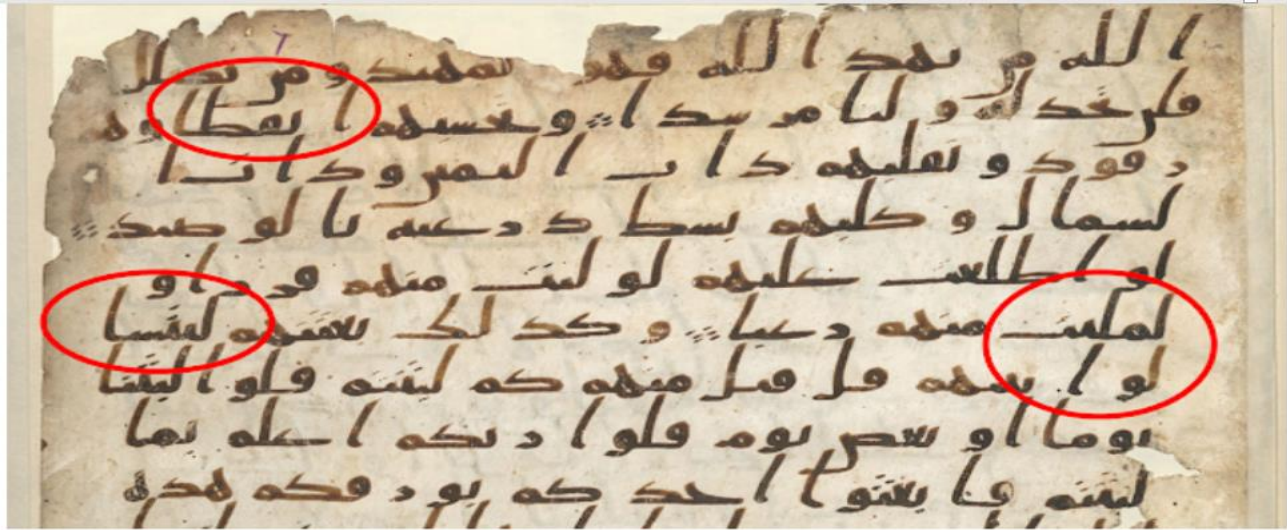 الله من يهد الله فهو المهتد ومن يضلل
فلن تجد له وليا مرشدا وتحسبهم ايقظا وهم
رقود ونقلبهم ذات اليمين وذات ا
لشمال وكلبهم بسط ذرعيه بالوصيد
لو اطلعت عليهم لوليت منهم فررا و
لمليت منهم رعبا وكذلك بعثنهم ليتسا
لوا بينهم قل قيل منهم كم لبثتم قلوا لبثنا
يوما او بعض يوم قلوا ربكم اعلم بما
لبثتم فابعثوا احدكم بورقكم هذه